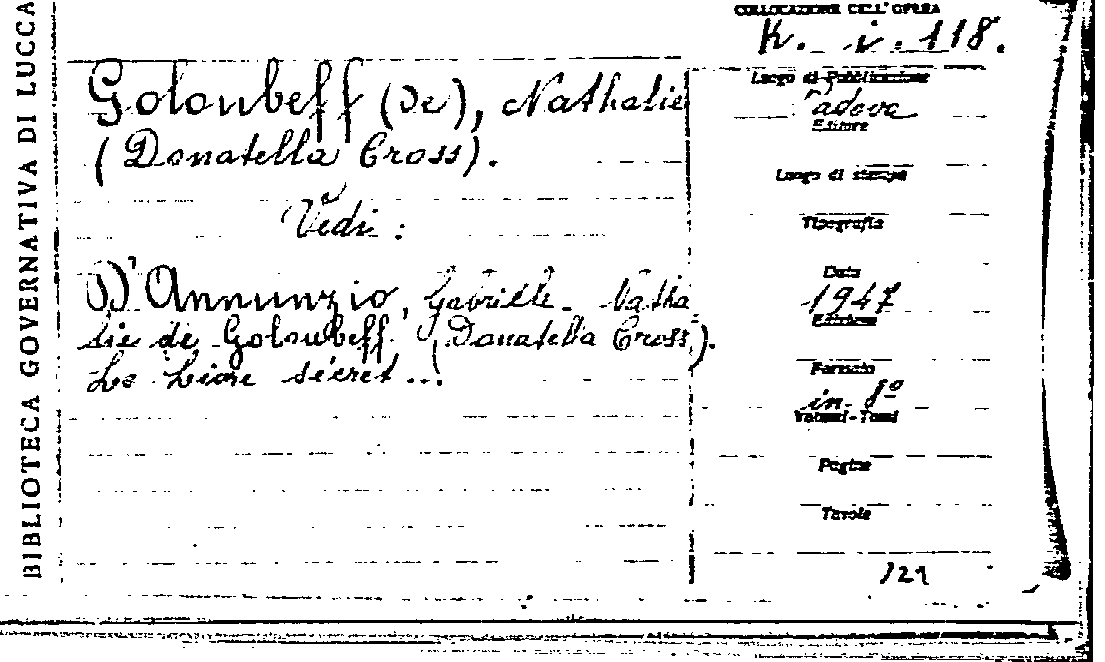 BIBLIOTECA GOVERNATIVA DI LUCCA
Goloubeff (De), Nathalie
(Donatella Cross).
Vedi :
D'Annunzio, Gabriele - Natha
lie de Goloubeff. (Donatella Cross).
Le livre sécret ...
COLLOCAZIONE DELL'OPERA
K. i. 118.
Luogo di Pubblicazione
Padova
Editore
Luogo di stampa
Tipografia
Data
1947
Edizione
Formato
in 8º
Volumi-Tomi
Pagine
Tavole
/21